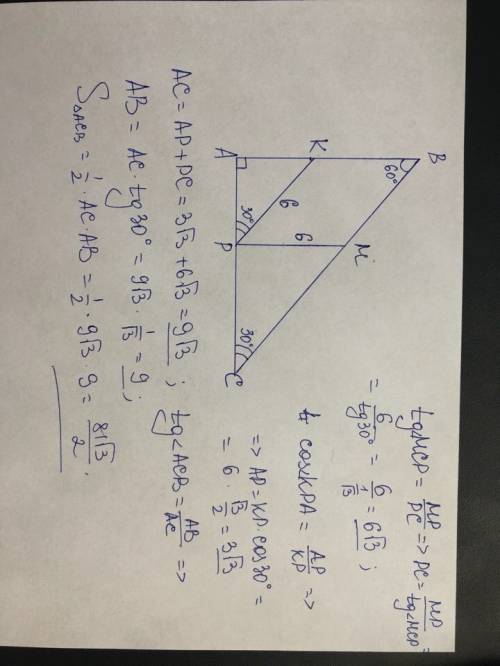 B
60°
K
M
6
6
A
30°
P
30°
C
tgMCP = MP/PC => PC = MP/tg<MCP =
= 6/tg30° = 6/(1/√3) = 6√3 ;
cos<KPA = AP/KP =>
=> AP = KP·cos30° =
= 6 · √3/2 = 3√3
AC = AP + PC = 3√3 + 6√3 = 9√3 ; tg<ACB = AB/AC =>
AB = AC·tg30° = 9√3 · 1/√3 = 9 ;
S△ACB = 1/2 · AC·AB = 1/2 · 9√3 · 9 = 81√3/2 .